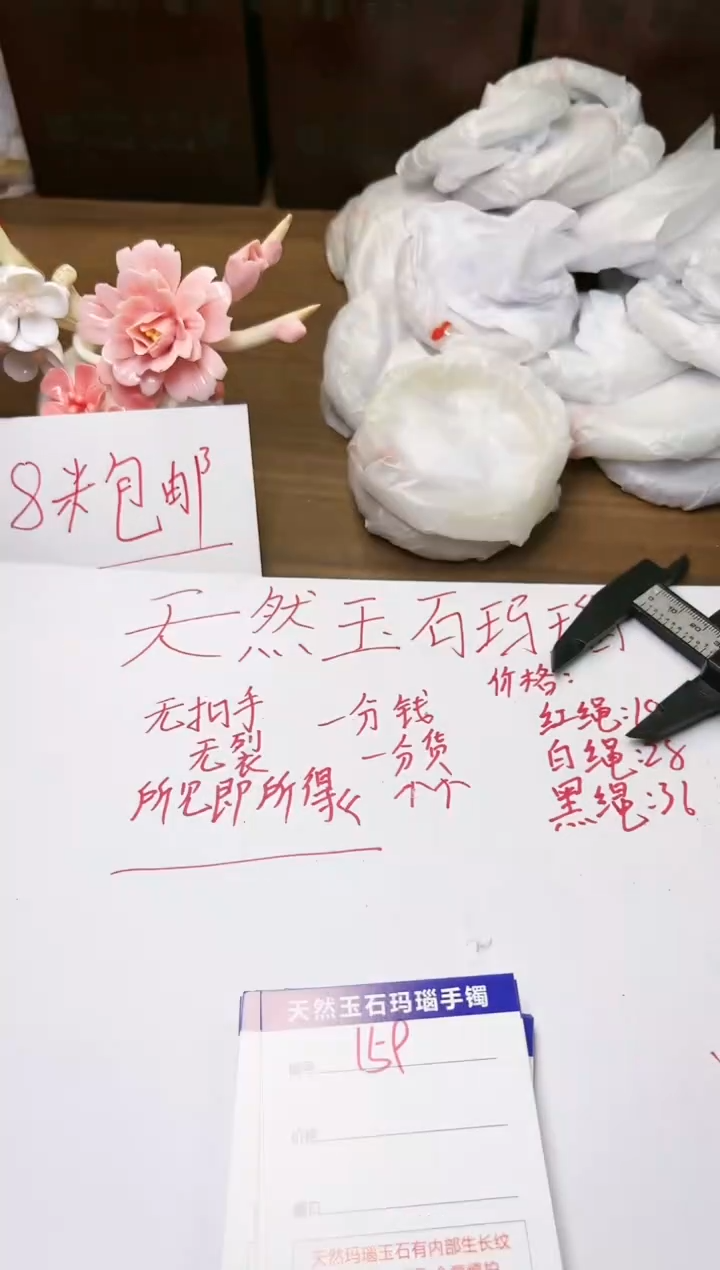 8米包邮
天然玉石玛瑙
价格:
无扣手 一分钱 红绳:18
无裂 一分货 白绳:28
所见即所得 个个 黑绳:36
天然玉石玛瑙手镯
编号 159
价格
圈口
天然玛瑙玉石有内部生长纹